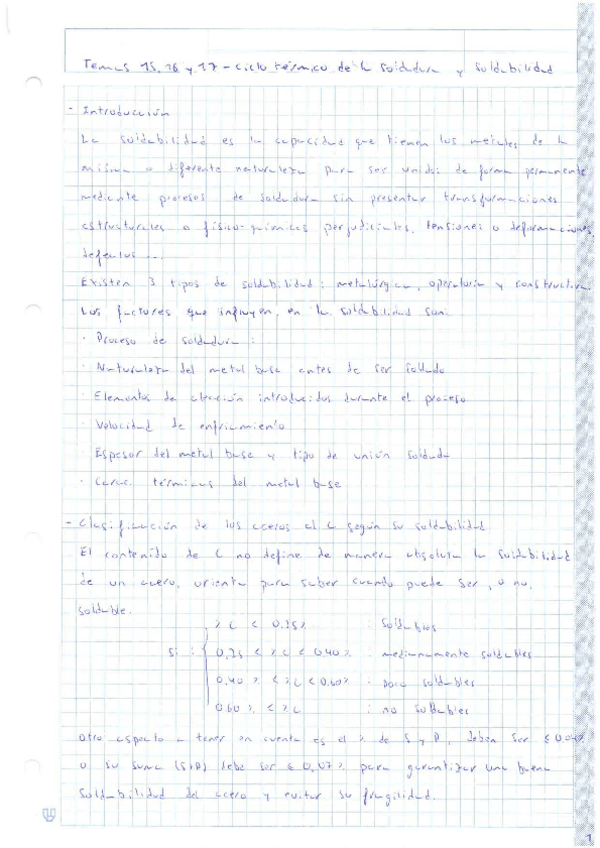 Temas 15, 16 y 17 - Ciclo térmico de la soldadura y soldabilidad
- Introducción
La soldabilidad es la capacidad que tienen los metales de la
misma o diferente naturaleza para ser unidos de forma permanente
mediante procesos de soldadura sin presentar transformaciones
estructurales o físico-químicas perjudiciales, tensiones o deformaciones,
defectos ...
Existen 3 tipos de soldabilidad: metalúrgica, operatoria y constructiva.
Los factores que influyen en la soldabilidad son:
· Proceso de soldadura:
· Naturaleza del metal base antes de ser soldado
· Elementos de aleación introducidos durante el proceso
· Velocidad de enfriamiento
· Espesor del metal base y tipo de unión soldada
· Carac. térmicas del metal base
- Clasificación de los aceros al C según su soldabilidad
El contenido de C no define de manera absoluta la soldabilidad
de un acero, orienta para saber cuando puede ser, o no,
soldable.
% C < 0,25% : Soldables
Si : { 0,25 < % C < 0,40 % : medianamente soldables
0,40 % < % C < 0,60% : poco soldables
0,60 % < % C : no soldables
Otro aspecto a tener en cuenta es el % de S y P, deben ser ≤ 0,04%
o su suma (S+P) debe ser ≤ 0,07% para garantizar una buena
soldabilidad del acero y evitar su fragilidad.
1